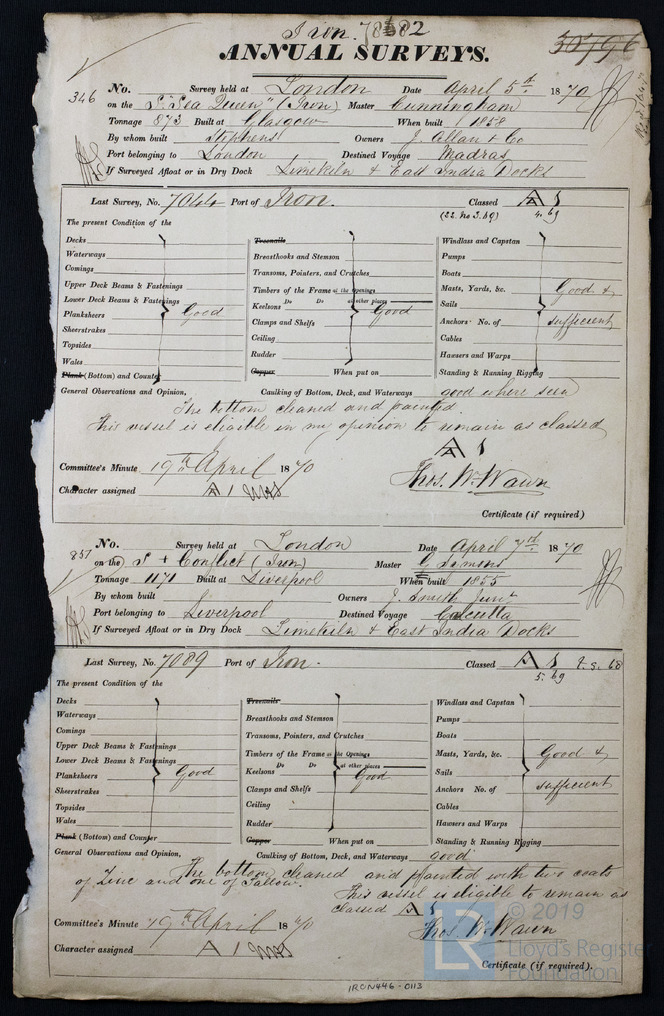 Iron. 78582
30796
ANNUAL SURVEYS.
346
No. Survey held at London Date April 5th 1870
on the S "Sea Queen" (Iron) Master Cunningham
Tonnage 873 Built at Glasgow When built 1858
By whom built Stephens Owners J. Allan & Co
Port belonging to London Destined Voyage Madras
If Surveyed Afloat or in Dry Dock Limekiln & East India Docks
Last Survey, No. 7044 Port of Iron. Classed A 1
(22. no 3. 69) 4. 69
The present Condition of the
Decks
Waterways
Comings
Upper Deck Beams & Fastenings
Lower Deck Beams & Fastenings
Planksheers Good
Sheerstrakes
Topsides
Wales
Plank (Bottom) and Counter
Treenails
Breasthooks and Stemson
Transoms, Pointers, and Crutches
Timbers of the Frame at the Openings
Do Do at other places
Keelsons Good
Clamps and Shelfs
Ceiling
Rudder
Copper When put on
Windlass and Capstan
Pumps
Boats
Masts, Yards, &c. Good &
Sails
Anchors No. of sufficient
Cables
Hawsers and Warps
Standing & Running Rigging
General Observations and Opinion, Caulking of Bottom, Deck, and Waterways good where seen
The bottom cleaned and painted.
This vessel is eligible in my opinion to remain as classed
A 1
Committee's Minute 19th April 1870
Character assigned A 1
Thos. W. Wawn
Certificate (if required)
857
No. Survey held at London Date April 7th 1870
on the S + Conflict (Iron) Master G Simons
Tonnage 1171 Built at Liverpool When built 1855
By whom built Owners J. Smith Junr
Port belonging to Liverpool Destined Voyage Calcutta
If Surveyed Afloat or in Dry Dock Limekiln & East India Docks
Last Survey, No. 7089 Port of Iron. Classed A 1 2. s. 68
5. 69
The present Condition of the
Decks
Waterways
Comings
Upper Deck Beams & Fastenings
Lower Deck Beams & Fastenings
Planksheers Good
Sheerstrakes
Topsides
Wales
Plank (Bottom) and Counter
Treenails
Breasthooks and Stemson
Transoms, Pointers, and Crutches
Timbers of the Frame at the Openings
Do Do at other places
Keelsons Good
Clamps and Shelfs
Ceiling
Rudder
Copper When put on
Windlass and Capstan
Pumps
Boats
Masts, Yards, &c. Good &
Sails
Anchors No. of sufficient
Cables
Hawsers and Warps
Standing & Running Rigging
General Observations and Opinion, Caulking of Bottom, Deck, and Waterways good
The bottom cleaned and painted with two coats
of Zinc and one of Tallow.
This vessel is eligible to remain as
classed A 1
Committee's Minute 19th April 1870
Character assigned A 1
Thos W. Wawn
Certificate (if required).
© 2019
Lloyd's Register
Foundation
LR
IRON446-0113